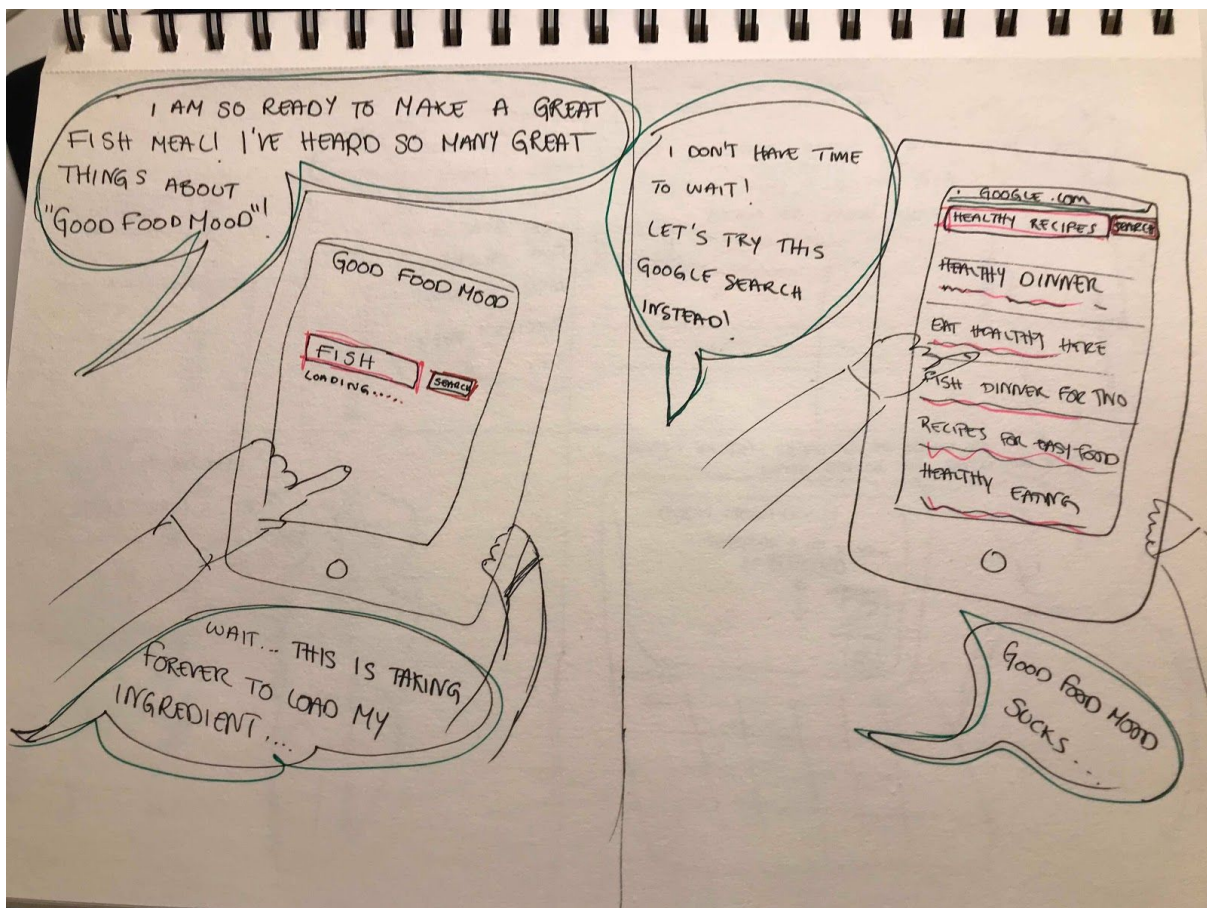 I AM SO READY TO MAKE A GREAT
FISH MEAL! I'VE HEARD SO MANY GREAT
THINGS ABOUT
"GOOD FOOD MOOD"!
GOOD FOOD MOOD
FISH
SEARCH
LOADING.....
WAIT... THIS IS TAKING
FOREVER TO LOAD MY
INGREDIENT....
I DON'T HAVE TIME
TO WAIT!
LET'S TRY THIS
GOOGLE SEARCH
INSTEAD!
GOOGLE.COM
HEALTHY RECIPES
SEARCH
HEALTHY DINNER
EAT HEALTHY HERE
FISH DINNER FOR TWO
RECIPES FOR EASY FOOD
HEALTHY EATING
GOOD FOOD MOOD
SUCKS....